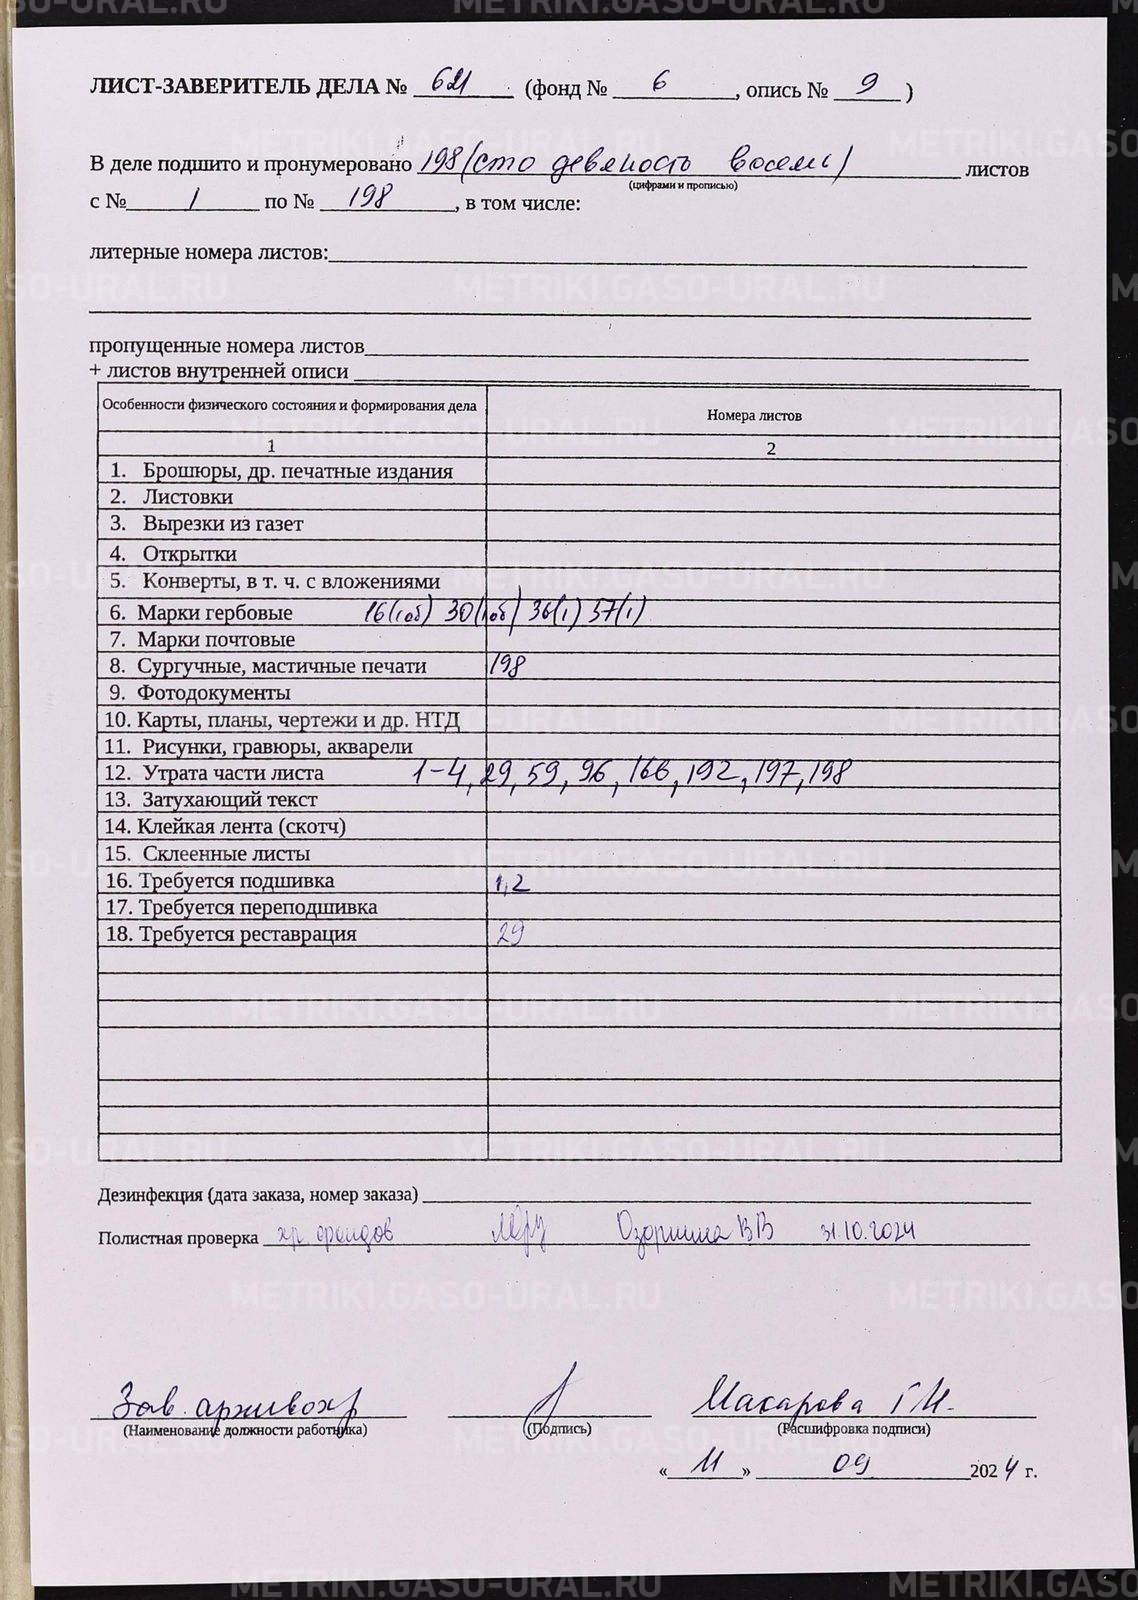 ЛИСТ-ЗАВЕРИТЕЛЬ ДЕЛА № 621 (фонд № 6, опись № 9)
В деле подшито и пронумеровано 198 (сто девяносто восемь) листов
(цифрами и прописью)
с № 1 по № 198, в том числе:
литерные номера листов:
пропущенные номера листов
+ листов внутренней описи
Особенности физического состояния и формирования дела Номера листов
1 2
1. Брошюры, др. печатные издания
2. Листовки
3. Вырезки из газет
4. Открытки
5. Конверты, в т. ч. с вложениями
6. Марки гербовые 16(1об) 30(1об) 36(1) 57(1)
7. Марки почтовые
8. Сургучные, мастичные печати 198
9. Фотодокументы
10. Карты, планы, чертежи и др. НТД
11. Рисунки, гравюры, акварели
12. Утрата части листа 1-4, 29, 59, 96, 166, 192, 197, 198
13. Затухающий текст
14. Клейкая лента (скотч)
15. Склеенные листы
16. Требуется подшивка 1, 2
17. Требуется переподшивка
18. Требуется реставрация 29
Дезинфекция (дата заказа, номер заказа)
Полистная проверка хр. фондов Озорнина ВВ 31.10.2024
Зав. архивохр Макарова Г.И.
(Наименование должности работника) (Подпись) (Расшифровка подписи)
« 11 » 09 2024 г.
METRIKI.GASO-URAL.RU